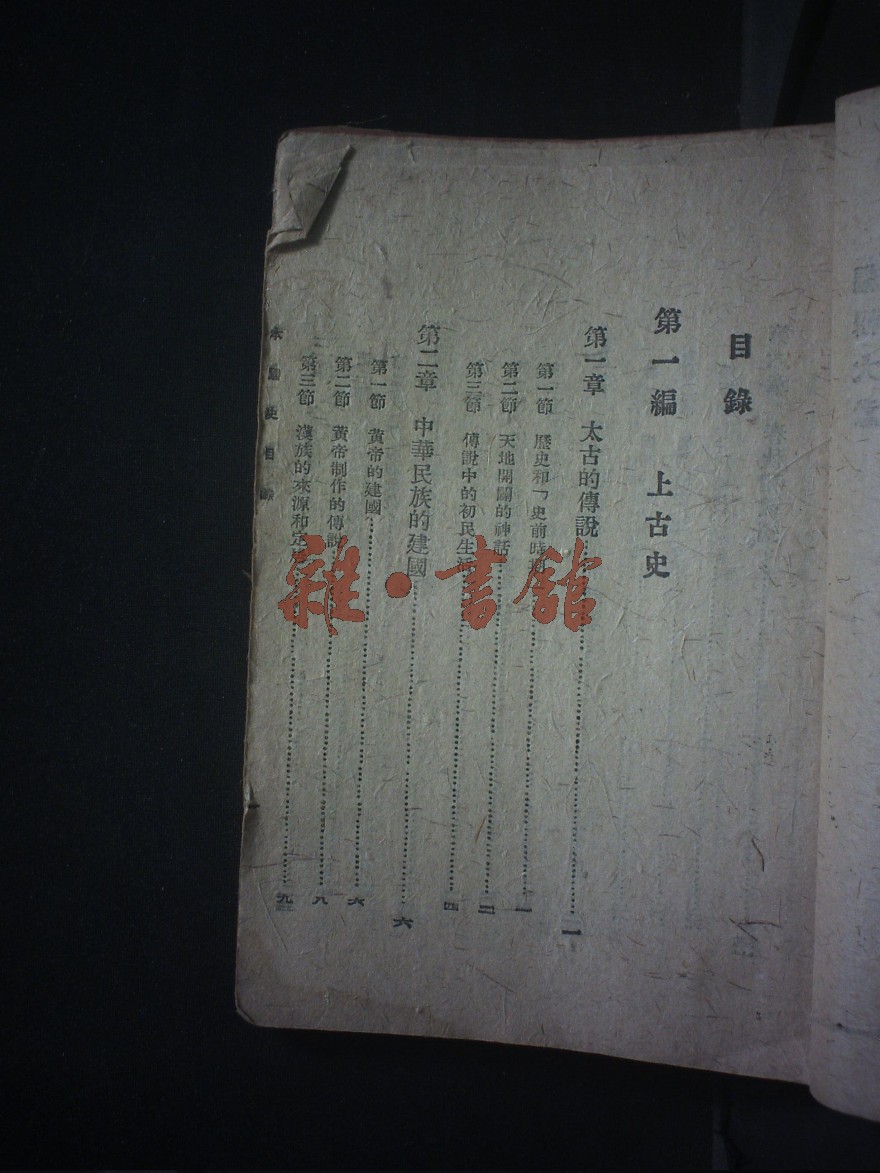 目錄
第一編 上古史
第一章 太古的傳說……一
第一節 歷史和「史前時期……一
第二節 天地開闢的神話……二
第三節 傳說中的初民生活……四
第二章 中華民族的建國……六
第一節 黃帝的建國……六
第二節 黃帝制作的傳說……九
第三節 漢族的來源和定……九
本國史目錄
雜·書館